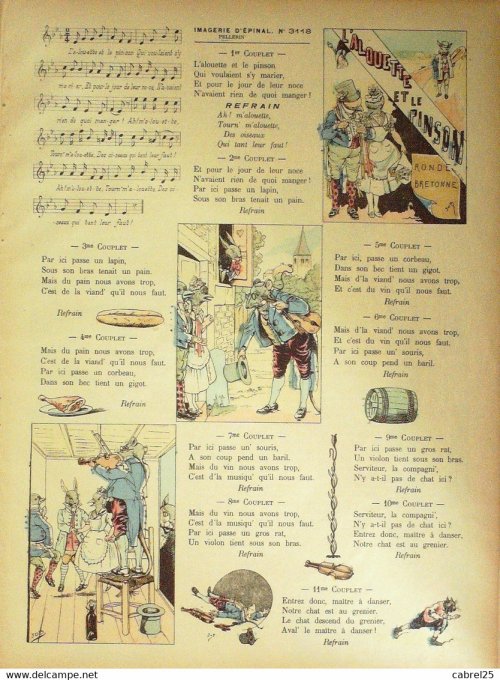 IMAGERIE D'ÉPINAL. Nº 3118
PELLERIN
L'ALOUETTE
ET LE
PINSON
RONDE
BRETONNE
L'a-lou-ette et le pin-son Qui voulaient s'y
ma-ri-er, Et pour le jour de leur no-ce, N'a-vaient
rien de quoi man-ger! Ah! m'a-lou-et-te,
Tourn' m'a-lou-ette, Des oi-seaux qui tant leur faut!
Ah! m'a-lou-et-te, Tourn' m'a-louette, Des oi-
-seaux qui tant leur faut!
— 1er COUPLET —
L'alouette et le pinson
Qui voulaient s'y marier,
Et pour le jour de leur noce
N'avaient rien de quoi manger!
REFRAIN
Ah! m'alouette,
Tourn' m'alouette,
Des oiseaux
Qui tant leur faut!
— 2me COUPLET —
Et pour le jour de leur noce
N'avaient rien de quoi manger!
Par ici passe un lapin,
Sous son bras tenait un pain.
Refrain
— 3me COUPLET —
Par ici passe un lapin,
Sous son bras tenait un pain.
Mais du pain nous avons trop,
C'est de la viand' qu'il nous faut.
Refrain
— 4me COUPLET —
Mais du pain nous avons trop,
C'est de la viand' qu'il nous faut.
Par ici passe un corbeau,
Dans son bec tient un gigot.
Refrain
— 5me COUPLET —
Par ici, passe un corbeau,
Dans son bec tient un gigot.
Mais d'la viand' nous avons trop,
Et c'est du vin qu'il nous faut.
Refrain
— 6me COUPLET —
Mais d'la viand' nous avons trop,
Et c'est du vin qu'il nous faut.
Par ici passe un' souris,
A son coup pend un baril.
Refrain
— 7me COUPLET —
Par ici passe un' souris,
A son coup pend un baril.
Mais du vin nous avons trop,
C'est d'la musiqu' qu'il nous faut.
Refrain
— 8me COUPLET —
Mais du vin nous avons trop,
C'est d'la musiqu' qu'il nous faut.
Par ici passe un gros rat,
Un violon tient sous son bras.
Refrain
— 9me COUPLET —
Par ici passe un gros rat,
Un violon tient sous son bras.
Serviteur, la compagni',
N'y a-t-il pas de chat ici?
Refrain
— 10me COUPLET —
Serviteur, la compagni',
N'y a-t-il pas de chat ici?
Entrez donc, maître à danser,
Notre chat est au grenier.
Refrain
— 11me COUPLET —
Entrez donc, maître à danser,
Notre chat est au grenier.
Le chat descend du grenier,
Aval' le maître à danser!
Refrain
www.delcampe.net
cabrel25